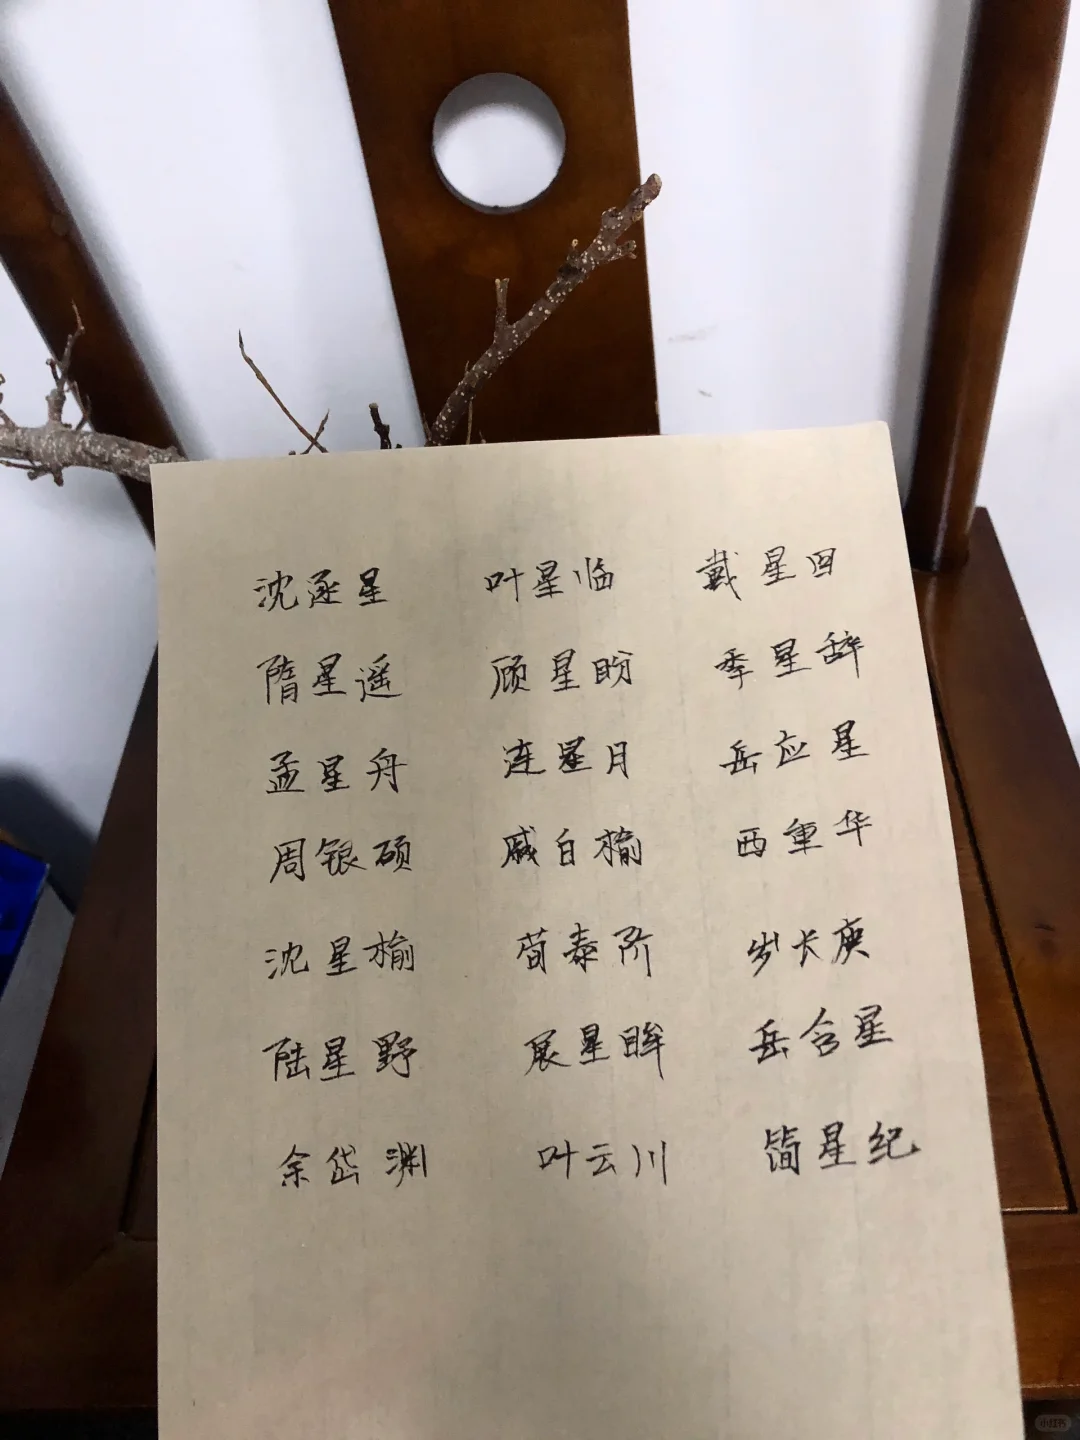 沈逐星 叶星临 戴星回
隋星遥 顾星盼 季星辞
孟星舟 连星月 岳应星
周银硕 戚白榆 西重华
沈星榆 荀泰阶 岁长庚
陆星野 展星眸 岳含星
余岱渊 叶云川 简星纪
小红书